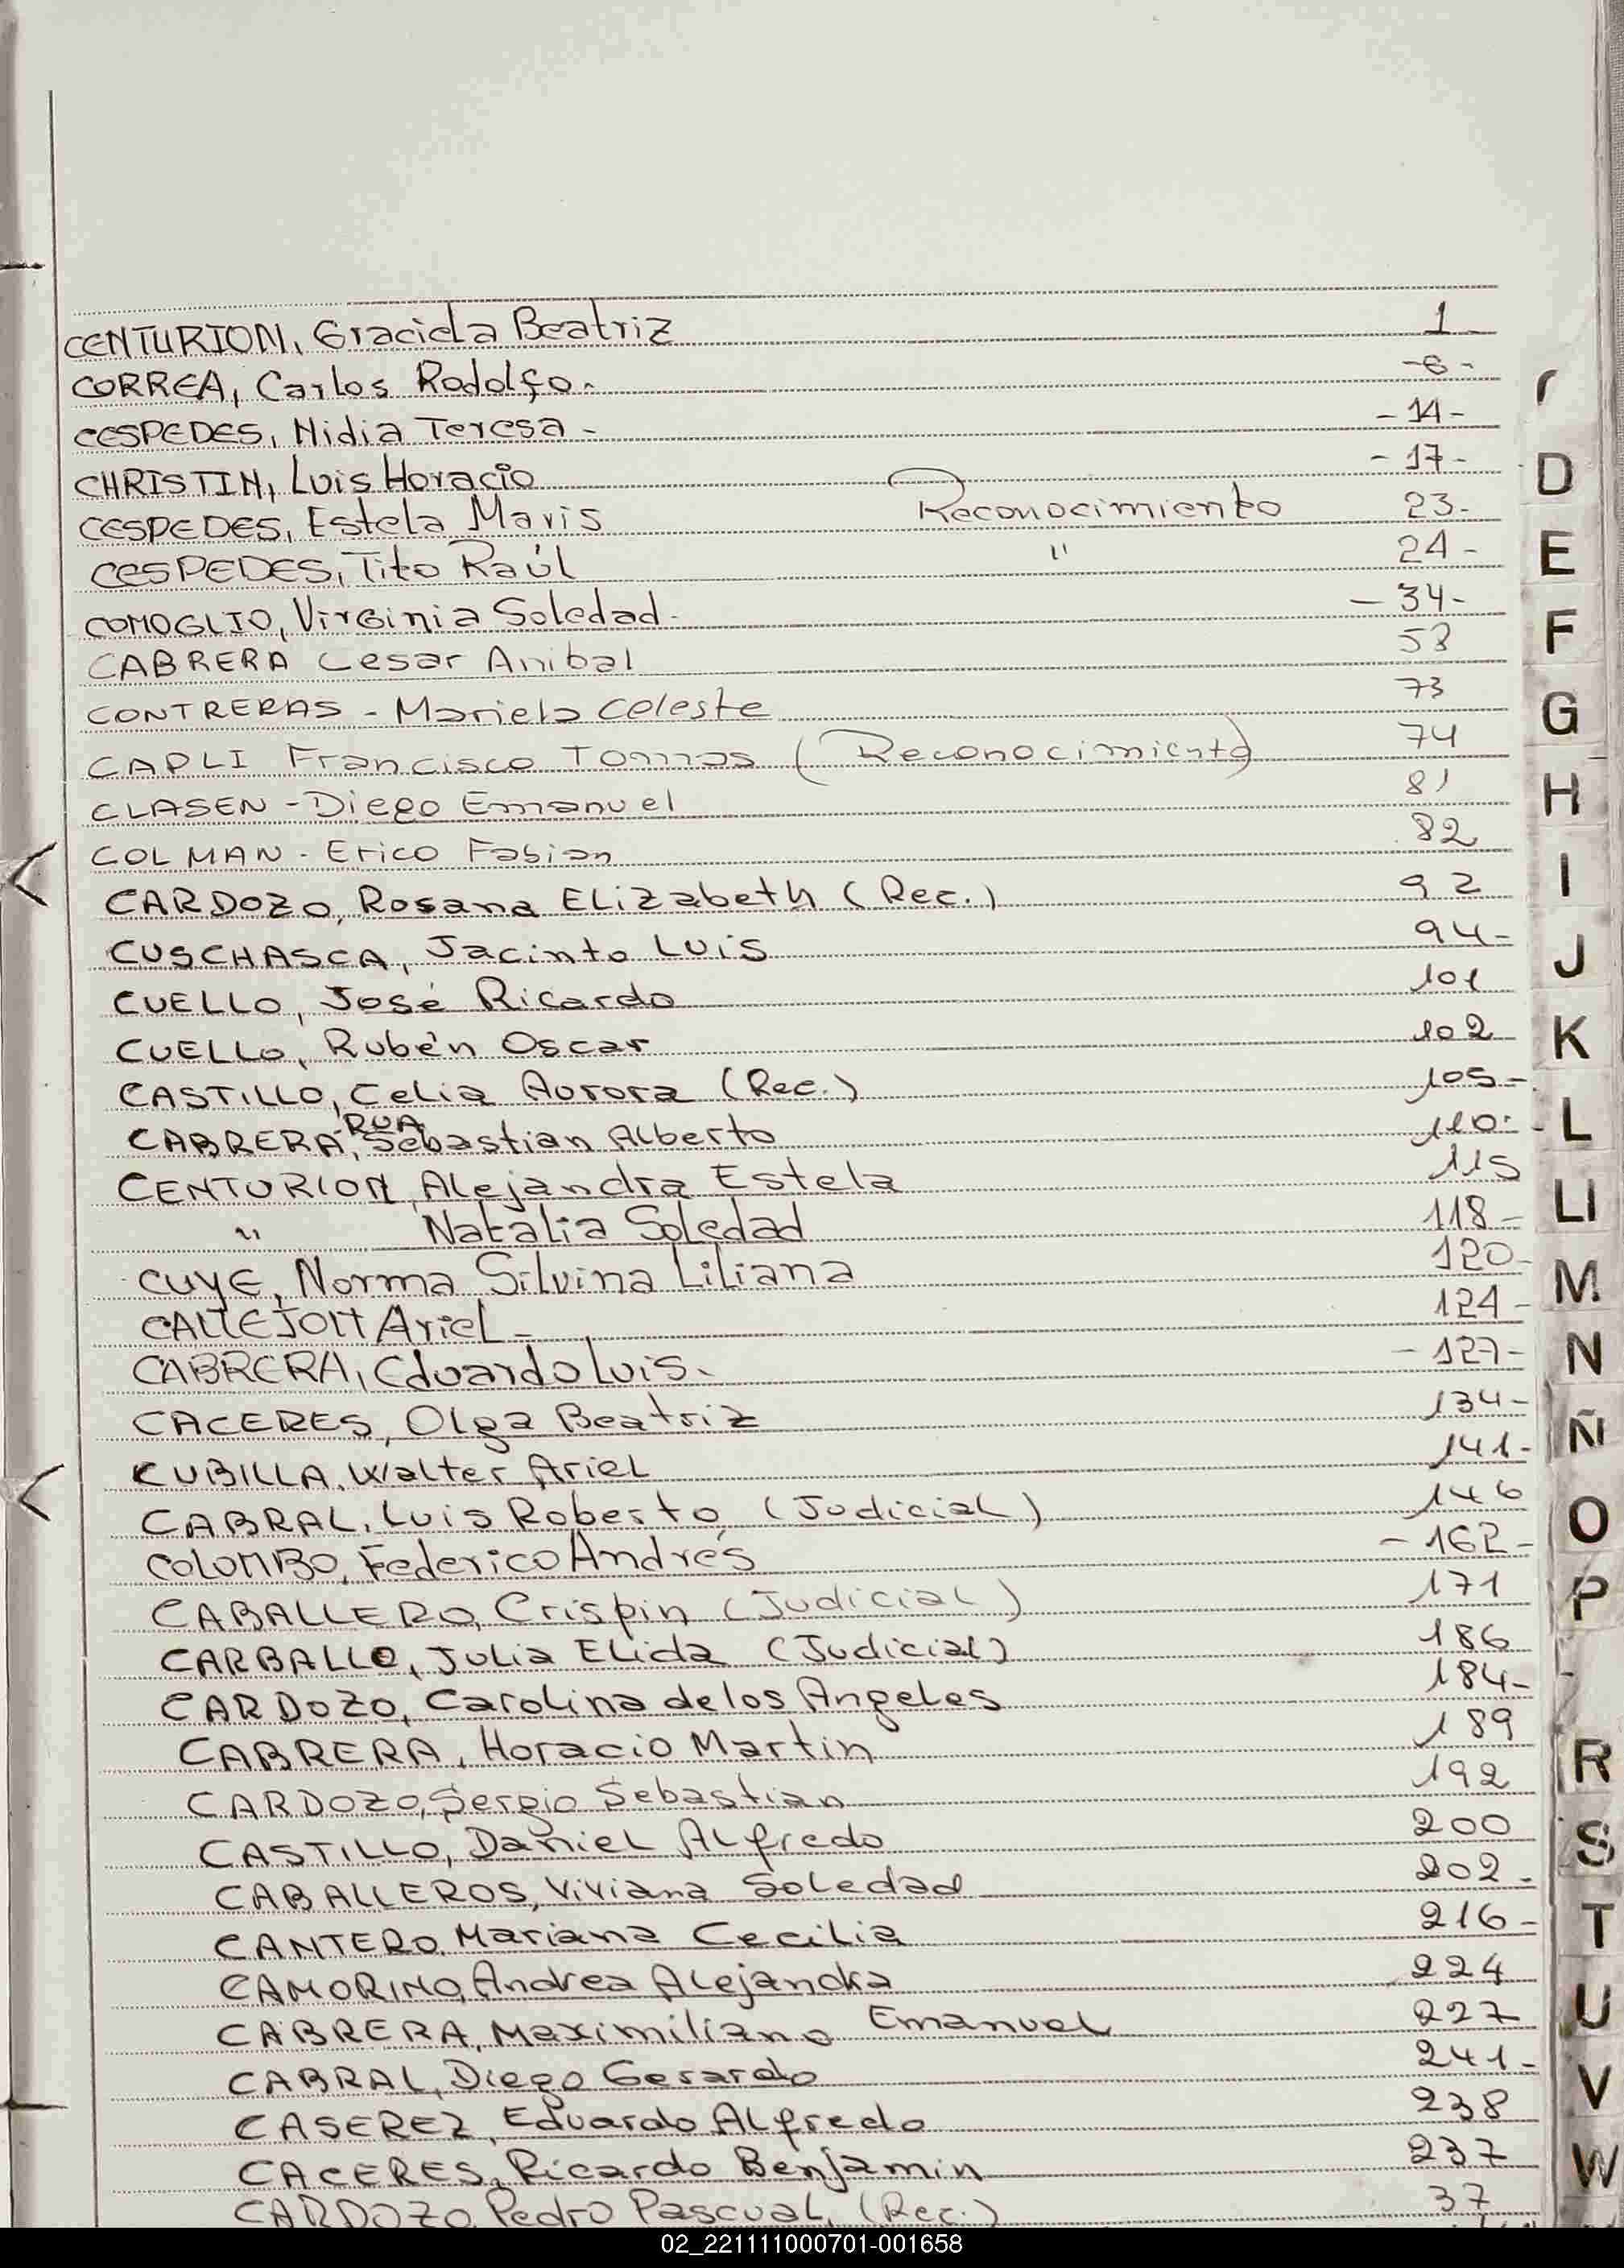 CENTURION, Graciela Beatriz 1-
CORREA, Carlos Rodolfo.- -6-
CESPEDES, Nidia Teresa - -14-
CHRISTIN, Luis Horacio -17-
CESPEDES, Estela Maris Reconocimiento 23-
CESPEDES, Tito Raúl " 24-
COMOGLIO, Virginia Soledad- -34-
CABRERA Cesar Anibal 53
CONTRERAS - Mariela Celeste 73
CAPLI Francisco Tomas (Reconocimiento) 74
CLASEN - Diego Emanuel 81
COLMAN - Erico Fabian 82
CARDOZO, Rosana Elizabeth (Rec.) 92
CUSCHASCA, Jacinto Luis 94-
CUELLO, José Ricardo 101
CUELLO, Rubén Oscar 102
CASTILLO, Celia Aurora (Rec.) 105-
CABRERA RUA, Sebastian Alberto 110-
CENTURION, Alejandra Estela 115
" Natalia Soledad 118-
CUYE, Norma Silvina Liliana 120-
Ariel - 124-
CABRERA, Eduardo Luis. -127-
CACERES, Olga Beatriz 134-
CUBILLA, Walter Ariel 141-
CABRAL, Luis Roberto (Judicial) 146
COLOMBO, Federico Andrés -162-
CABALLERO, Crispin (Judicial) 171
CARBALLO, Julia Elida (Judicial) 186
CARDOZO, Carolina de los Angeles 184-
CABRERA, Horacio Martin 189
CARDOZO, Sergio Sebastian 192
CASTILLO, Daniel Alfredo 200
CABALLEROS, Viviana Soledad 202-
CANTERO, Mariana Cecilia 216-
CAMORINO, Andrea Alejandra 224
CABRERA, Maximiliano Emanuel 227
CABRAL, Diego Gerardo 241-
CASEREZ, Eduardo Alfredo 238
CACERES, Ricardo Benjamin 237
CARDOZO, Pedro Pascual (Rec.) 37
D
E
F
G
H
I
J
K
L
Ll
M
N
Ñ
O
P
R
S
T
U
V
W
02_221111000701-001658